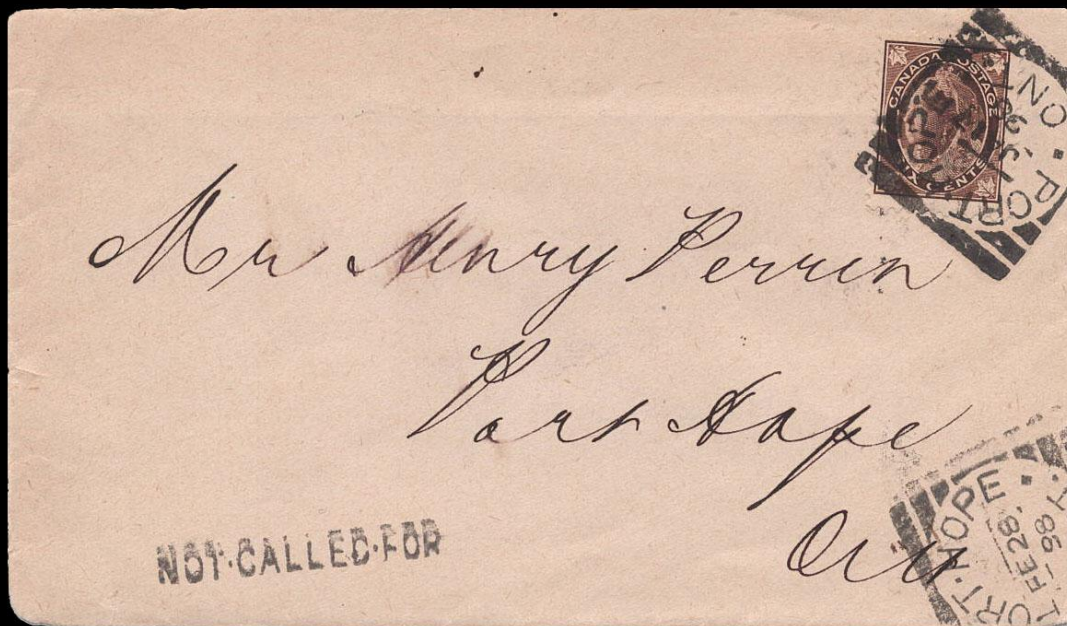 CANADA POSTAGE
SIX CENTS
PORT·HOPE·
ONT
Mr Henry Perrin
Port Hope
Ont
NOT·CALLED·FOR
PORT·HOPE·
FE 28
98